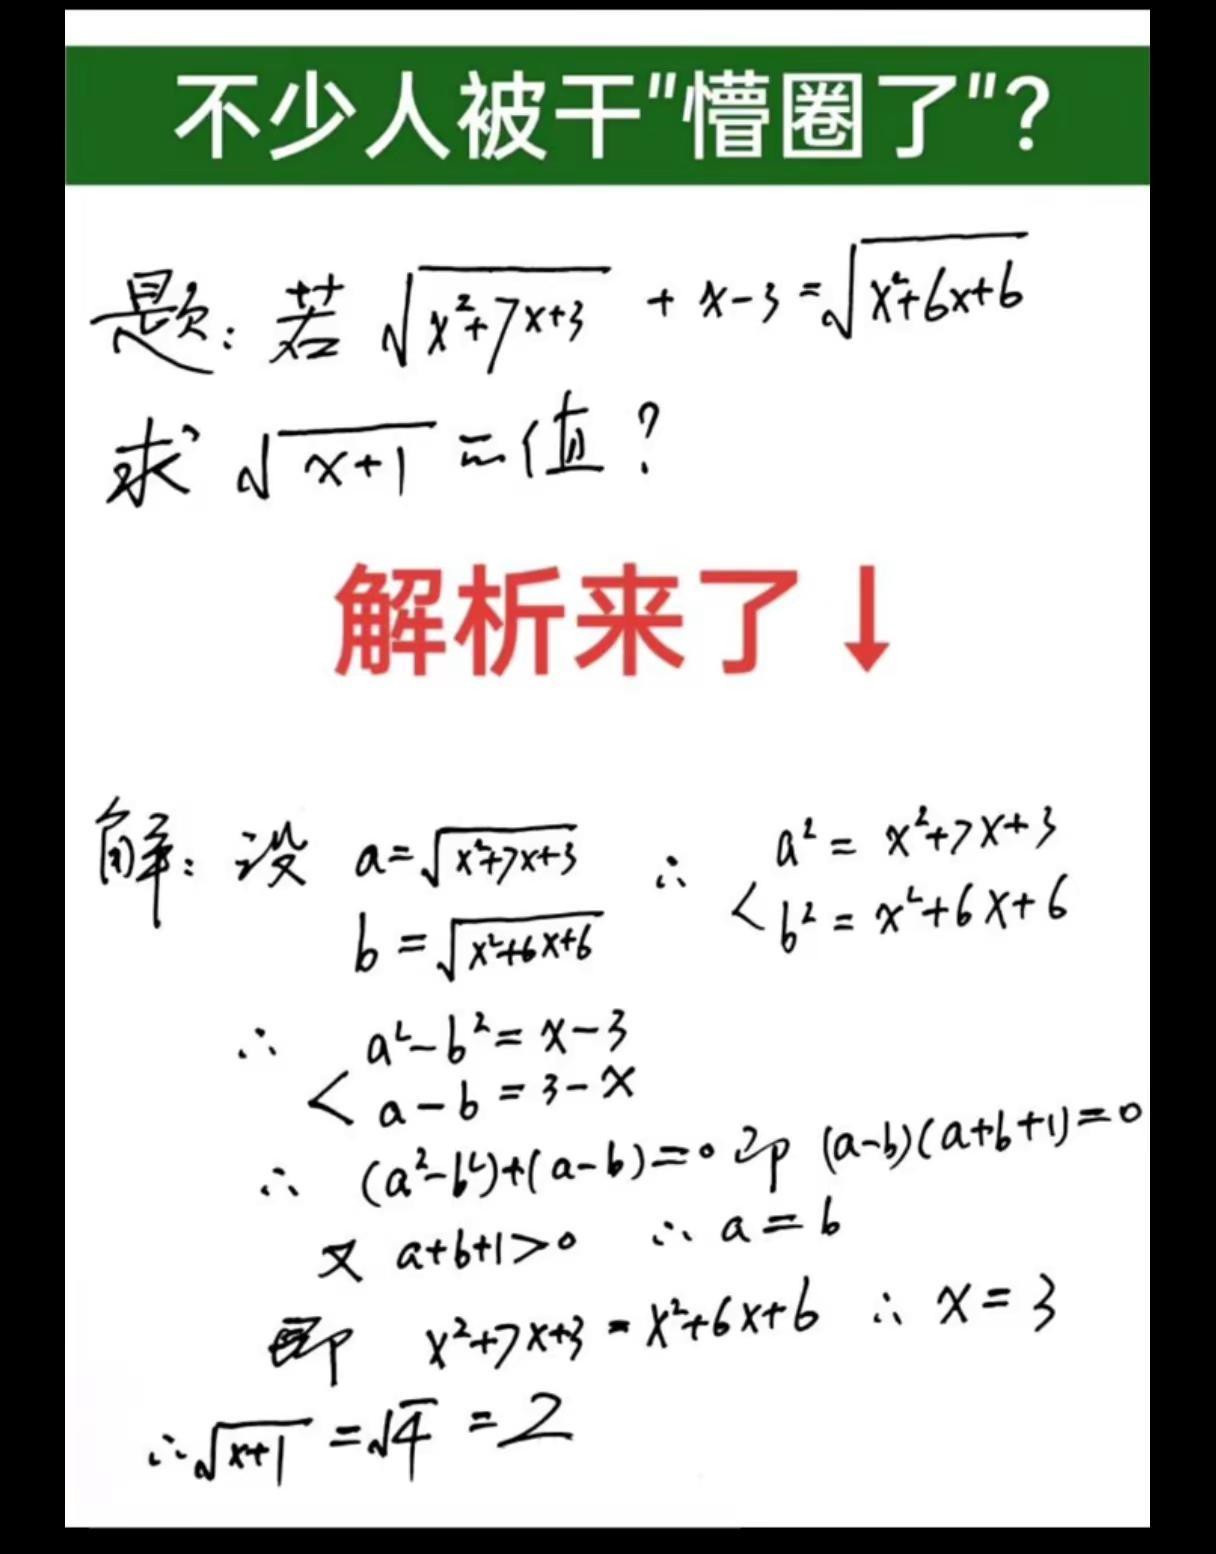 不少人被干"懵圈了"?
题:若 √(x²+7x+3) + x-3 = √(x²+6x+6)
求 √(x+1) 之值?
解析来了↓
解:设 a=√(x²+7x+3) ∴ a² = x²+7x+3
b=√(x²+6x+6) b² = x²+6x+6
∴ a²-b² = x-3
a-b = 3-x
∴ (a²-b²)+(a-b)=0 即 (a-b)(a+b+1)=0
又 a+b+1>0 ∴ a=b
即 x²+7x+3 = x²+6x+6 ∴ x=3
∴ √(x+1) = √4 = 2